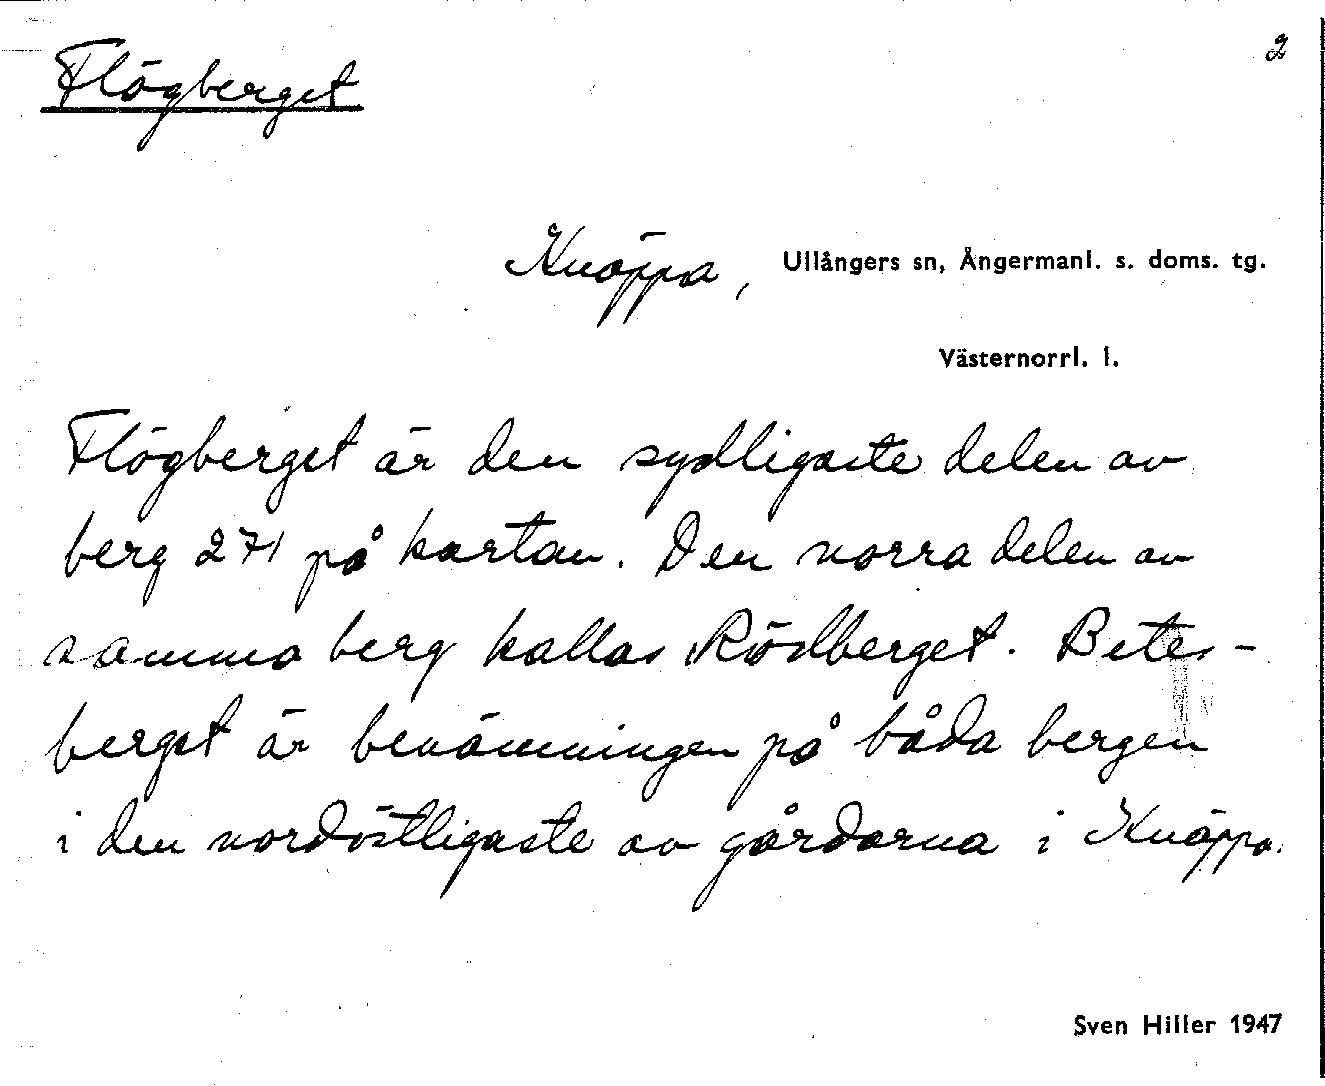 2
Flögberget
Knäppa, Ullångers sn, Ångermanl. s. doms. tg.
Västernorrl. l.
Flögberget är den sydligaste delen av
berg 271 på kartan. Den norra delen av
samma berg kallas Rödberget. Betes-
berget är benämningen på båda bergen
i den nordöstligaste av gårdarna i Knäppa.
Sven Hiller 1947